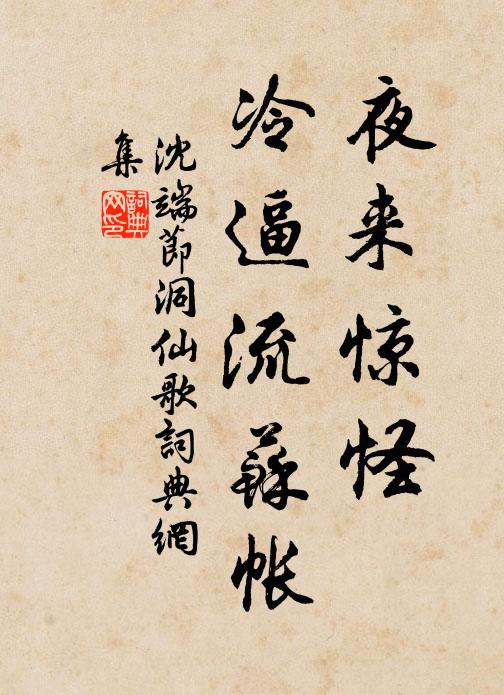 夜来惊怪
冷逼流蘇帐
沈端節洞仙歌詞典網
集
詞典網印